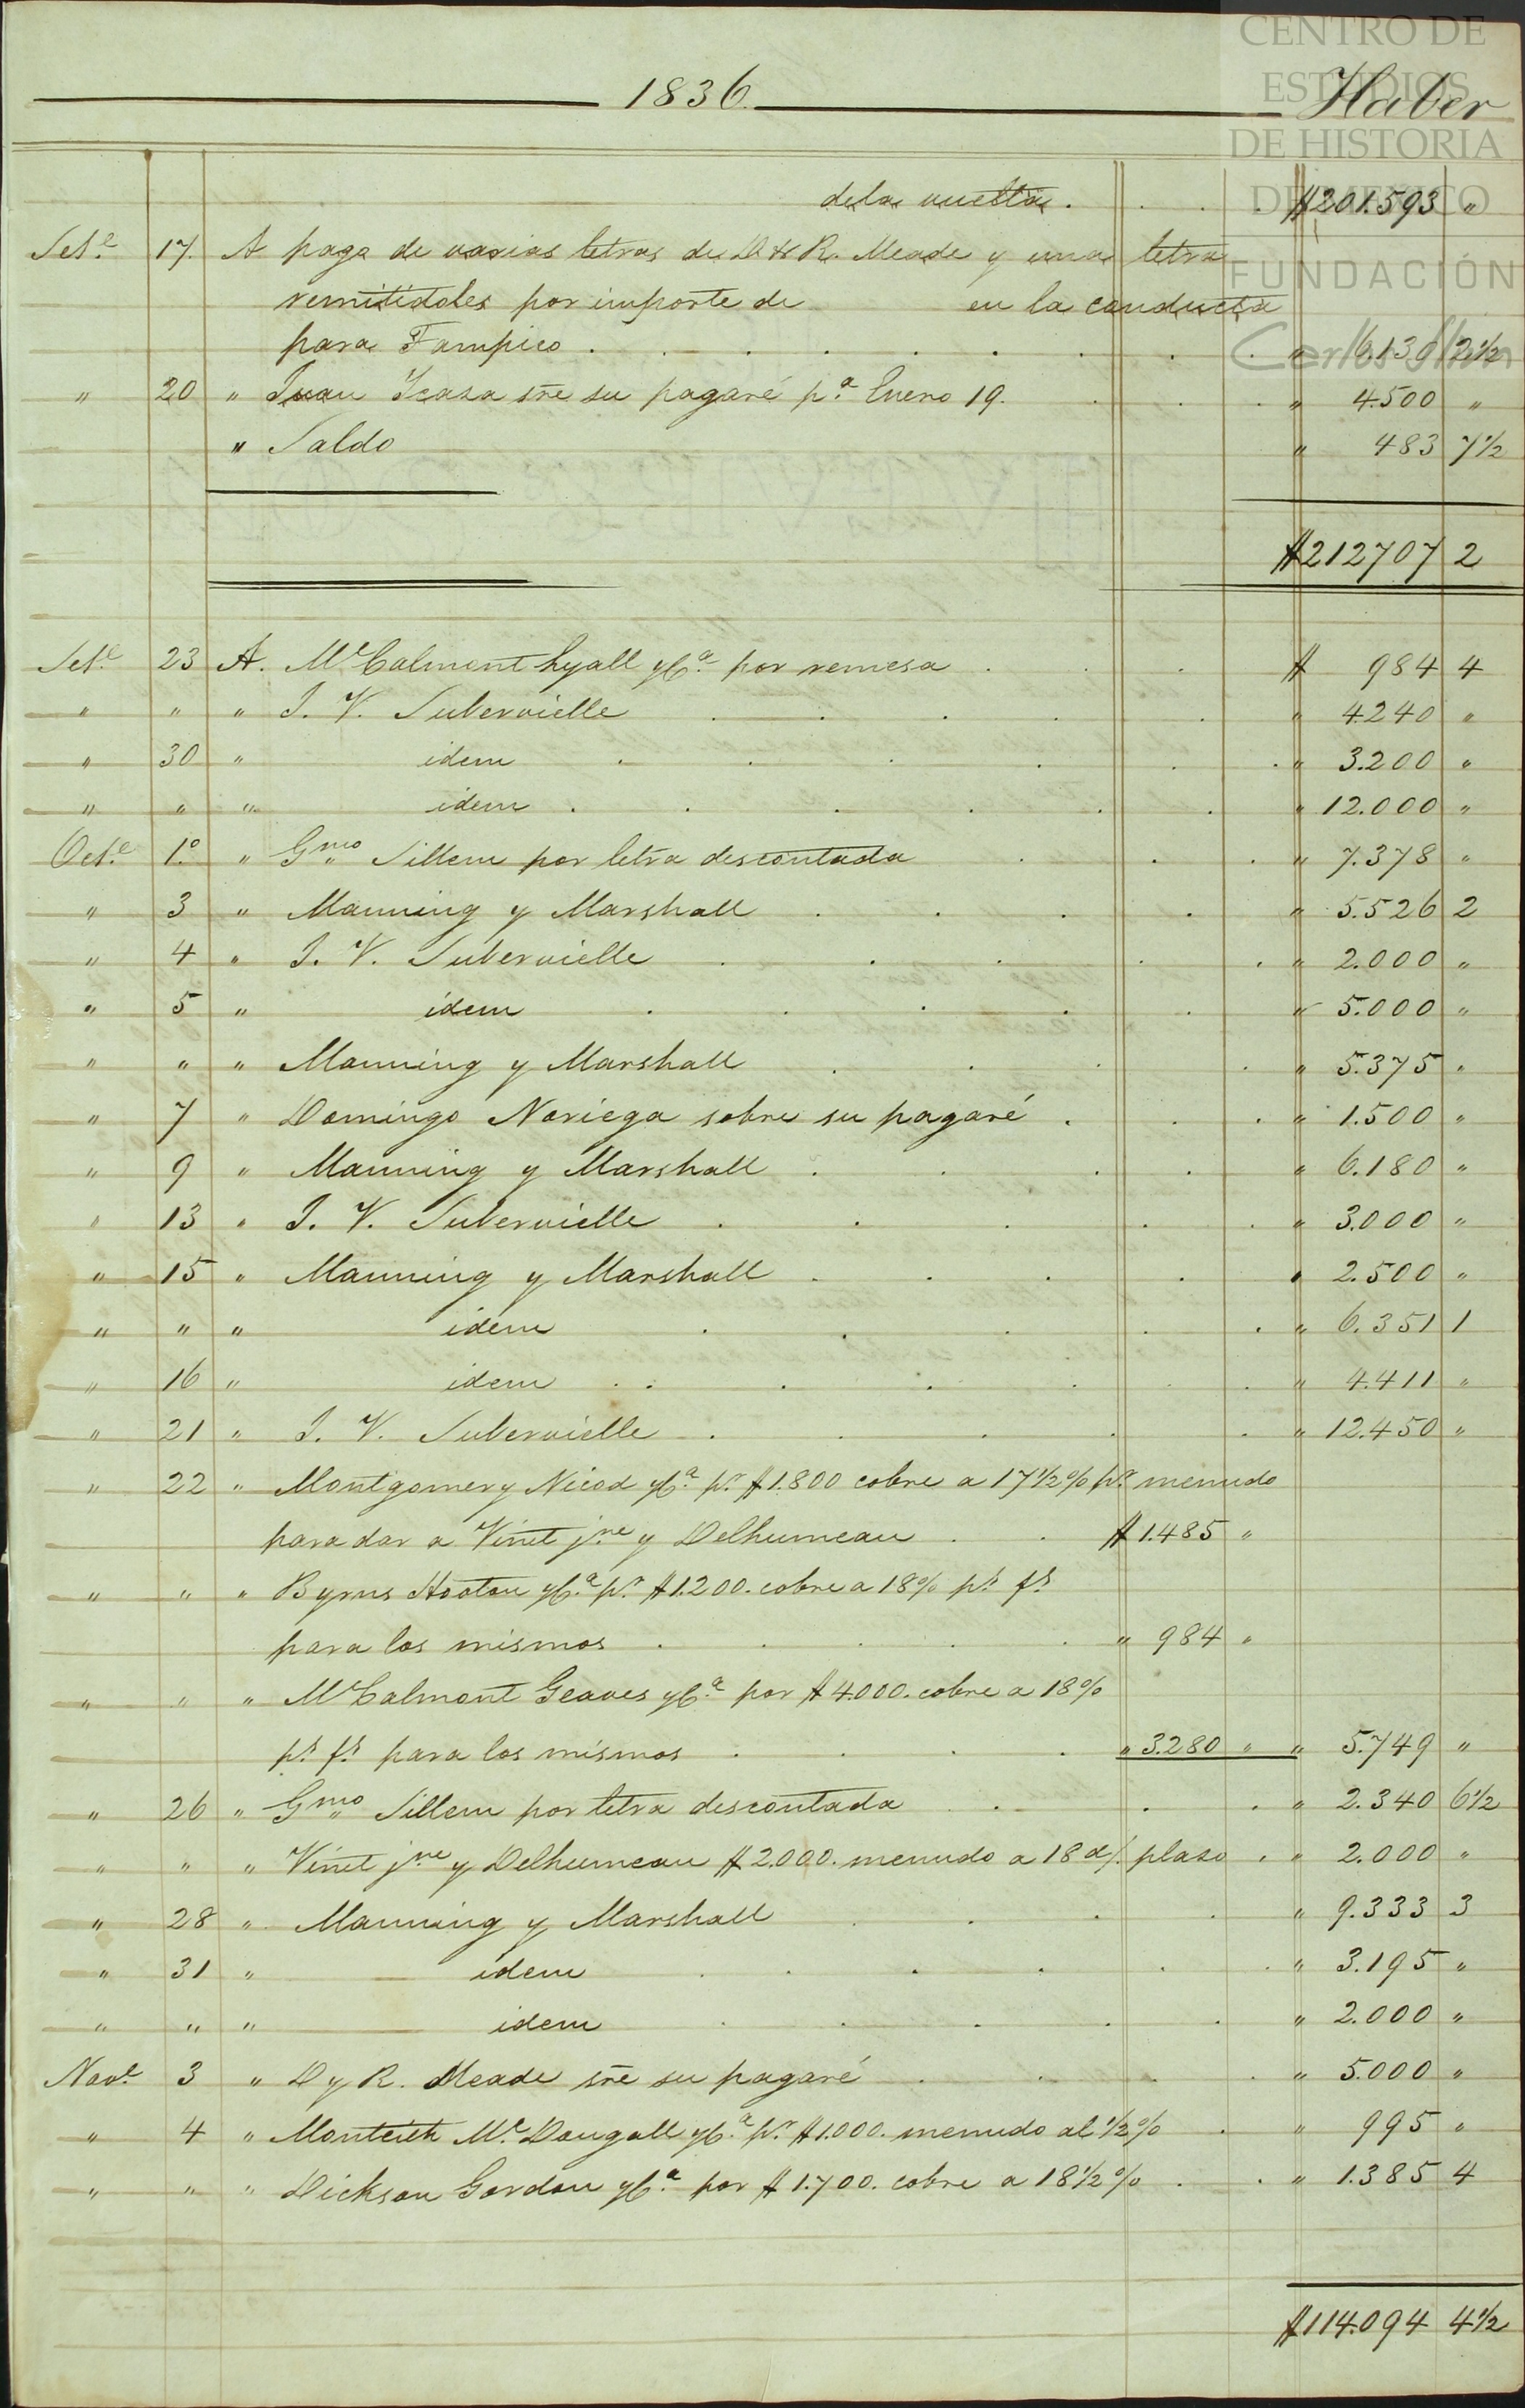 CENTRO DE
ESTUDIOS
DE HISTORIA
DE MEXICO
FUNDACIÓN
Carlos Slim
1836. Haber
de la vuelta . . . . $ 201.593 "
Set.e 17. A pago de varias letras de D. & R. Meade y una letra
remitidoles por importe de en la conducta
para Tampico . . . . . . . . " 6.130 2½
" 20 " Juan Icaza sre su pagaré p.a Enero 19. . . . " 4.500 "
" Saldo " 483 7½
$ 212707 2
Set.e 23 A. McCalmont Lyall yC.a por remesa . . . $ 984 4
" " " J. V. Subervielle . . . . . " 4.240 "
" 30 " idem . . . . . . . " 3.200 "
" " " idem . . . . . . " 12.000 "
Oct.e 1.o " Gmo Sillem por letra descontada . . . " 7.378 "
" 3 " Manning y Marshall . . . . " 5.526 2
" 4 " J. V. Subervielle . . . . . " 2.000 "
" 5 " idem . . . . . " 5.000 "
" " " Manning y Marshall . . . . " 5.375 "
" 7 " Domingo Noriega sobre su pagaré . . . " 1.500 "
" 9 " Manning y Marshall . . . . " 6.180 "
" 13 " J. V. Subervielle . . . . . " 3.000 "
" 15 " Manning y Marshall . . . . " 2.500 "
" " " idem . . . . . " 6.351 1
" 16 " idem . . . . . . " 4.411 "
" 21 " J. V. Subervielle . . . . . " 12.450 "
" 22 " Montgomery Nicod yC.a p.r $ 1.800 cobre a 17½% p.a menudo
para dar a Vinet j.ne y Delhumeau . . $ 1.485 "
" " " Byrns Hooton yC.a p.r $ 1.200. cobre a 18% p.s f.s
para los mismos . . . . . " 984 "
" " " McCalmont Geaves yC.a por $ 4.000. cobre a 18%
p.s f.s para los mismos . . . . " 3.280 " " 5.749 "
" 26 " Gmo Sillem por letra descontada . . . " 2.340 6½
" " " Vinet j.ne y Delhumeau $ 2.000. menudo a 18 d/. plaso . " 2.000 "
" 28 " Manning y Marshall . . . . " 9.333 3
" 31 " idem . . . . . . " 3.195 "
" " " idem . . . . . " 2.000 "
Nov.e 3 " D y R. Meade sre su pagaré . . . . " 5.000 "
" 4 " Monteith Mc.Dougall yC.a p.r $ 1.000. menudo al ½% . " 995 "
" " " Dickson Gordon yC.a por $ 1.700. cobre a 18½% . . " 1.385 4
$ 114.094 4½